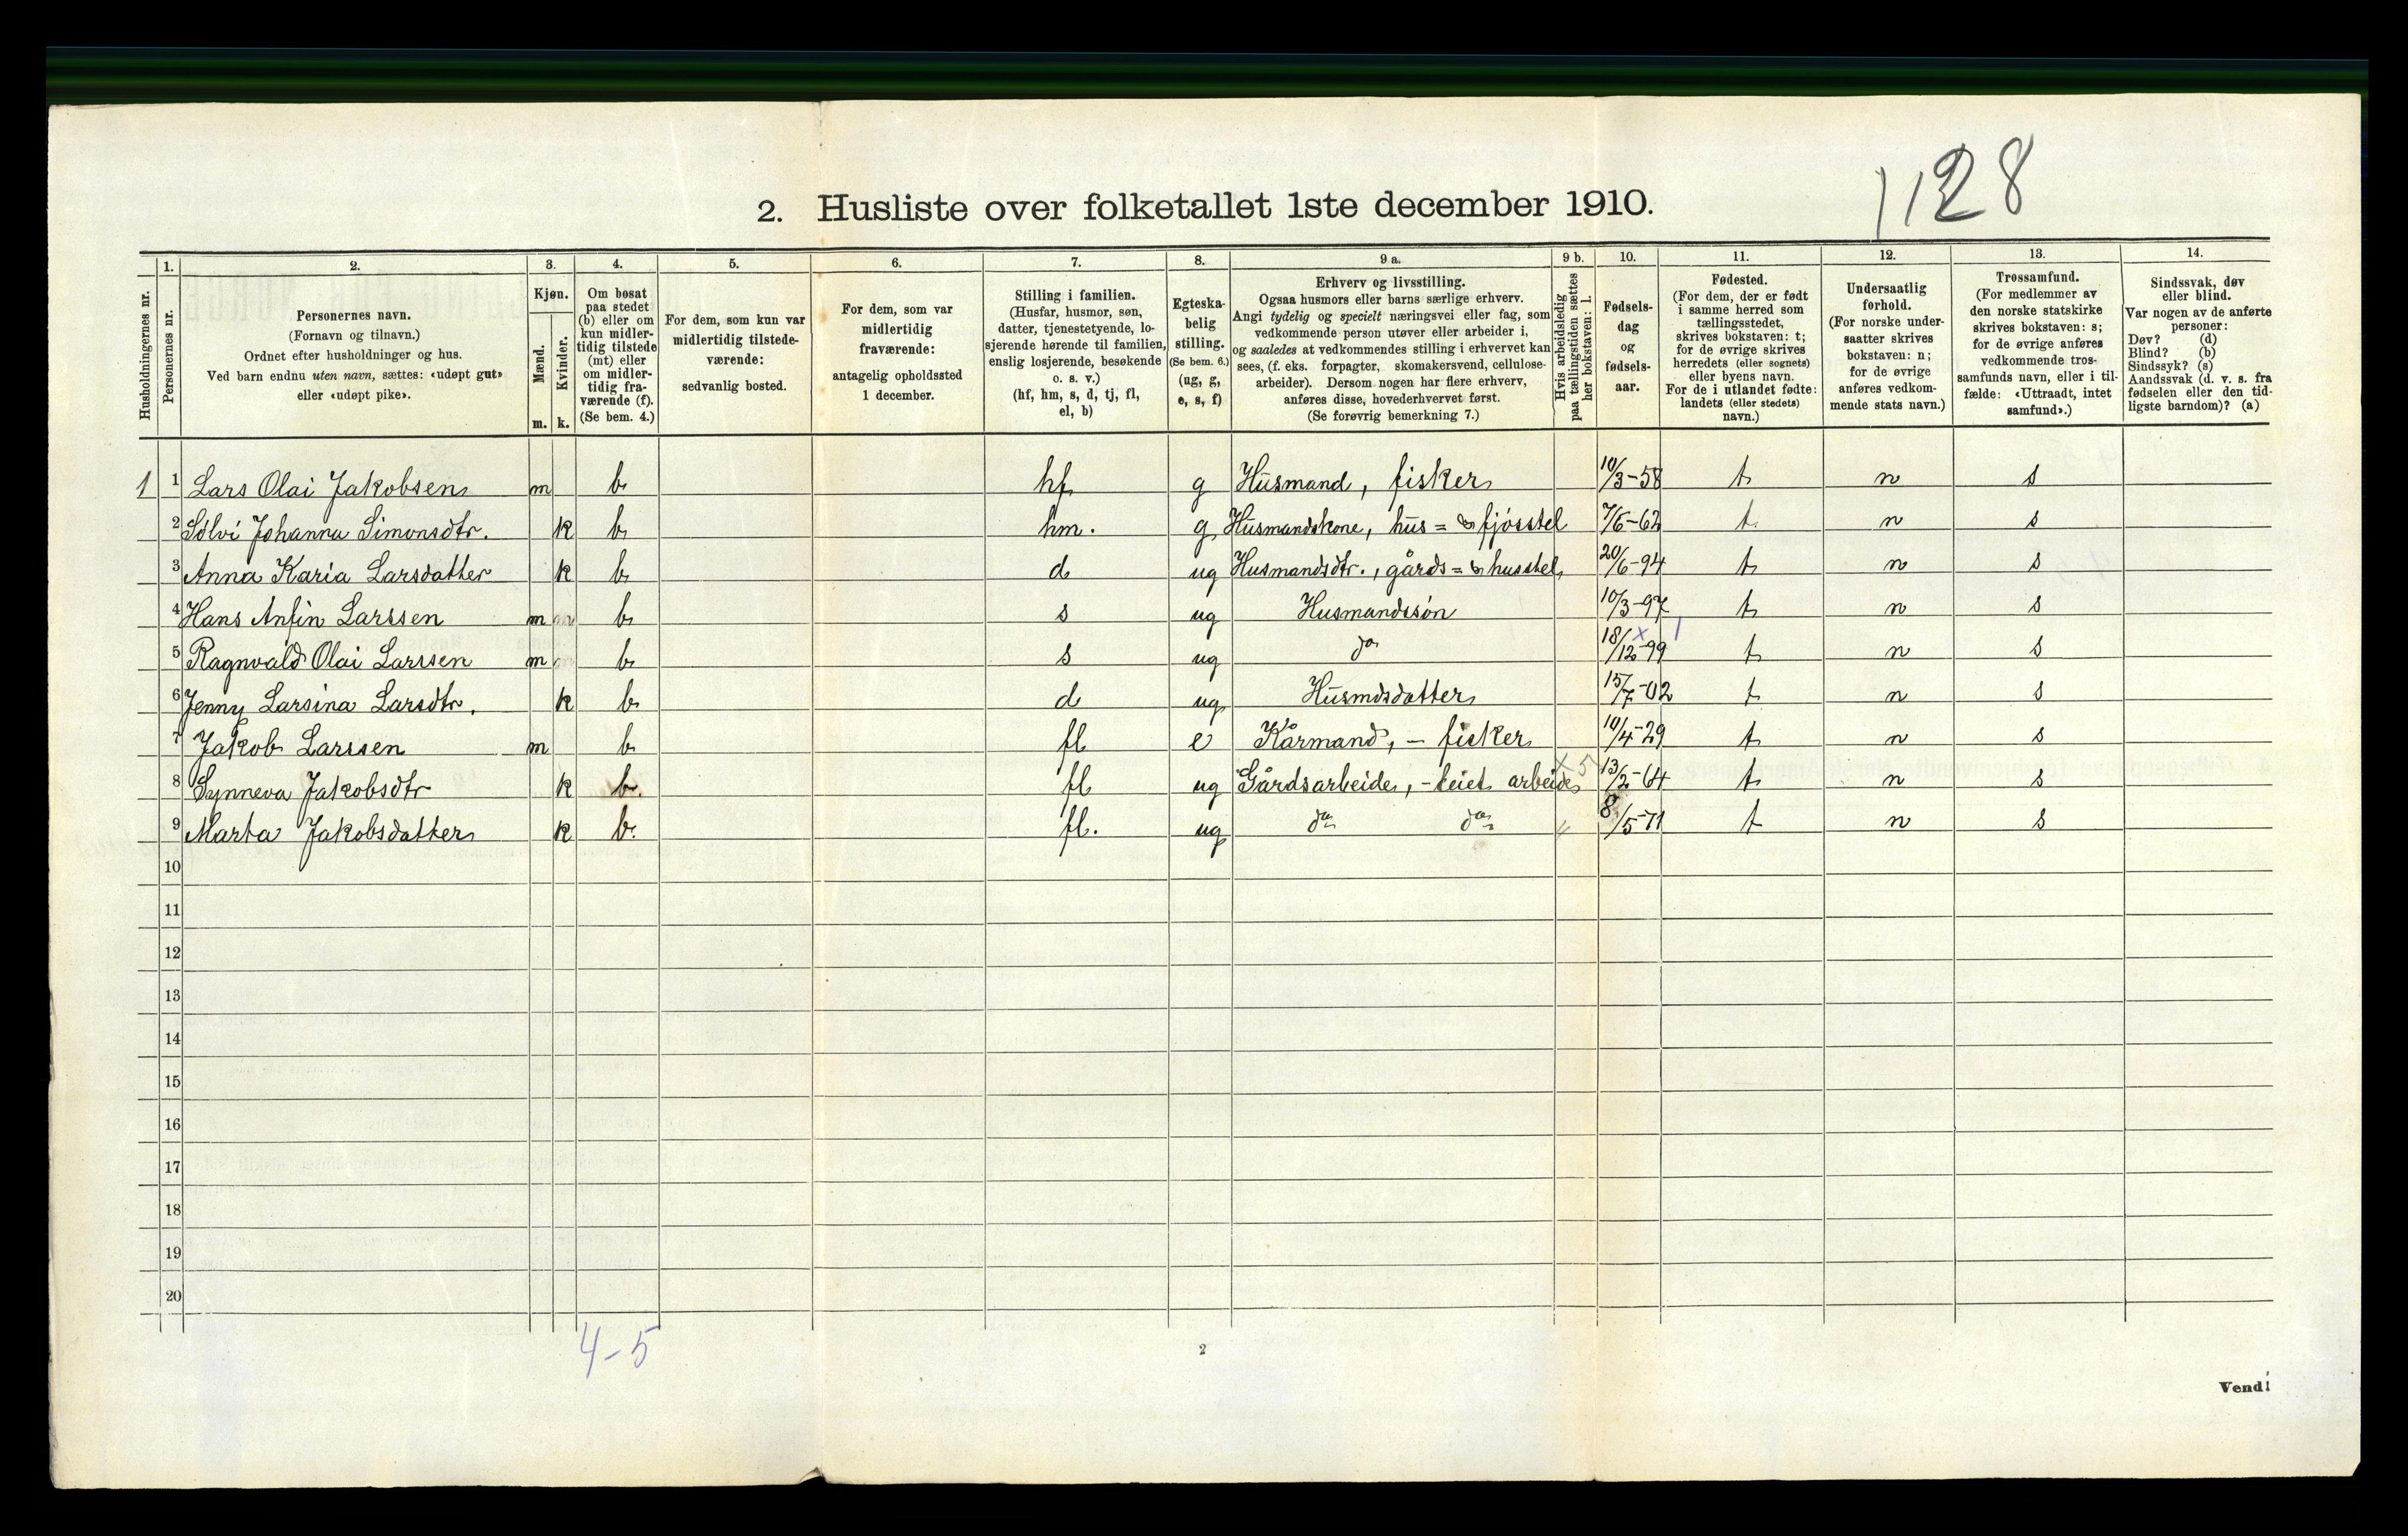 1128
2. Husliste over folketallet 1ste december 1910.
Husholdningernes nr.
1. Personernes nr.
2. Personernes navn.
(Fornavn og tilnavn.)
Ordnet efter husholdninger og hus.
Ved barn endnu uten navn, sættes: «udøpt gut»
eller «udøpt pike».
3. Kjøn.
Mænd. m.
Kvinder. k.
4. Om bosat
paa stedet
(b) eller om
kun midler-
tidig tilstede
(mt) eller
om midler-
tidig fra-
værende (f).
(Se bem. 4.)
5. For dem, som kun var
midlertidig tilstede-
værende:
sedvanlig bosted.
6. For dem, som var
midlertidig
fraværende:
antagelig opholdssted
1 december.
7. Stilling i familien.
(Husfar, husmor, søn,
datter, tjenestetyende, lo-
sjerende hørende til familien,
enslig losjerende, besøkende
o. s. v.)
(hf, hm, s, d, tj, fl,
el, b)
8. Egteska-
belig
stilling.
(Se bem. 6.)
(ug, g,
e, s, f)
9 a. Erhverv og livsstilling.
Ogsaa husmors eller barns særlige erhverv.
Angi tydelig og specielt næringsvei eller fag, som
vedkommende person utøver eller arbeider i,
og saaledes at vedkommendes stilling i erhvervet kan
sees, (f. eks. forpagter, skomakersvend, cellulose-
arbeider). Dersom nogen har flere erhverv,
anføres disse, hovederhvervet først.
(Se forøvrig bemerkning 7.)
9 b. Hvis arbeidsledig
paa tællingstiden sættes
her bokstaven: l.
10. Fødsels-
dag
og
fødsels-
aar.
11. Fødested.
(For dem, der er født
i samme herred som
tællingsstedet,
skrives bokstaven: t;
for de øvrige skrives
herredets (eller sognets)
eller byens navn.
For de i utlandet fødte:
landets (eller stedets)
navn.)
12. Undersaatlig
forhold.
(For norske under-
saatter skrives
bokstaven: n;
for de øvrige
anføres vedkom-
mende stats navn.)
13. Trossamfund.
(For medlemmer av
den norske statskirke
skrives bokstaven: s;
for de øvrige anføres
vedkommende tros-
samfunds navn, eller i til-
fælde: «Uttraadt, intet
samfund».)
14. Sindssvak, døv
eller blind.
Var nogen av de anførte
personer:
Døv? (d)
Blind? (b)
Sindssyk? (s)
Aandssvak (d. v. s. fra
fødselen eller den tid-
ligste barndom)? (a)
1 1 Lars Olai Jakobsen m b hf g Husmand, fisker 10/3-58 t n s
2 Sølvi Johanna Simonsdtr. k b hm. g Husmandskone, hus= & fjøsstel 7/6-62 t n s
3 Anna Karia Larsdatter k b d ug Husmandsdtr., gårds= & husstel 20/6-94 t n s
4 Hans Anfin Larssen m b s ug Husmandssøn 10/3-97 t n s
5 Ragnvald Olai Larssen m b s ug do 18/12-99 x 1 t n s
6 Jenny Larsina Larsdtr. k b d ug Husmdsdatter 15/7-02 t n s
7 Jakob Larssen m b fl e Kårmand, - fisker 10/4-29 t n s
8 Synneva Jakobsdtr k b. fl ug Gårdsarbeide, - leiet arbeide x5 13/2-64 t n s
9 Marta Jakobsdatter k b. fl. ug do do 8/5-71 t n s
10
11
12
13
14
15
16
17
18
19
20
4-5
2
Vend!